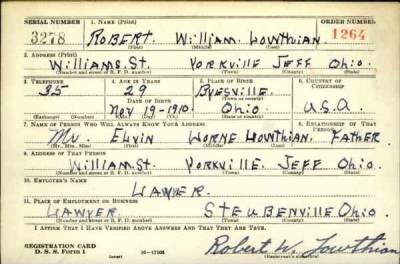 SERIAL NUMBER 1. NAME (Print) ORDER NUMBER
3278 ROBERT William Lowthian 1264
(First) (Middle) (Last)
2. ADDRESS (Print)
Williams. St. Yorkville Jeff Ohio.
(Number and street or R. F. D. number) (Town) (County) (State)
3. TELEPHONE 4. AGE IN YEARS 5. PLACE OF BIRTH 6. COUNTRY OF CITIZENSHIP
35 29 Byesville.
DATE OF BIRTH (Town or county)
Nov 19-1910. Ohio U.S.A
(Exchange) (Number) (Mo.) (Day) (Yr.) (State or country)
7. NAME OF PERSON WHO WILL ALWAYS KNOW YOUR ADDRESS 8. RELATIONSHIP OF THAT PERSON
Mr. Elvin Lorne Lowthian. Father
(Mr., Mrs., Miss) (First) (Middle) (Last)
9. ADDRESS OF THAT PERSON
William St. Yorkville. Jeff Ohio.
(Number and street or R. F. D. number) (Town) (County) (State)
10. EMPLOYER'S NAME
LAWYER.
11. PLACE OF EMPLOYMENT OR BUSINESS
LAWYER. STEUBENVille Ohio.
(Number and street or R. F. D. number) (Town) (County) (State)
I AFFIRM THAT I HAVE VERIFIED ABOVE ANSWERS AND THAT THEY ARE TRUE.
REGISTRATION CARD
D. S. S. Form 1 16-17105
Robert W. Lowthian